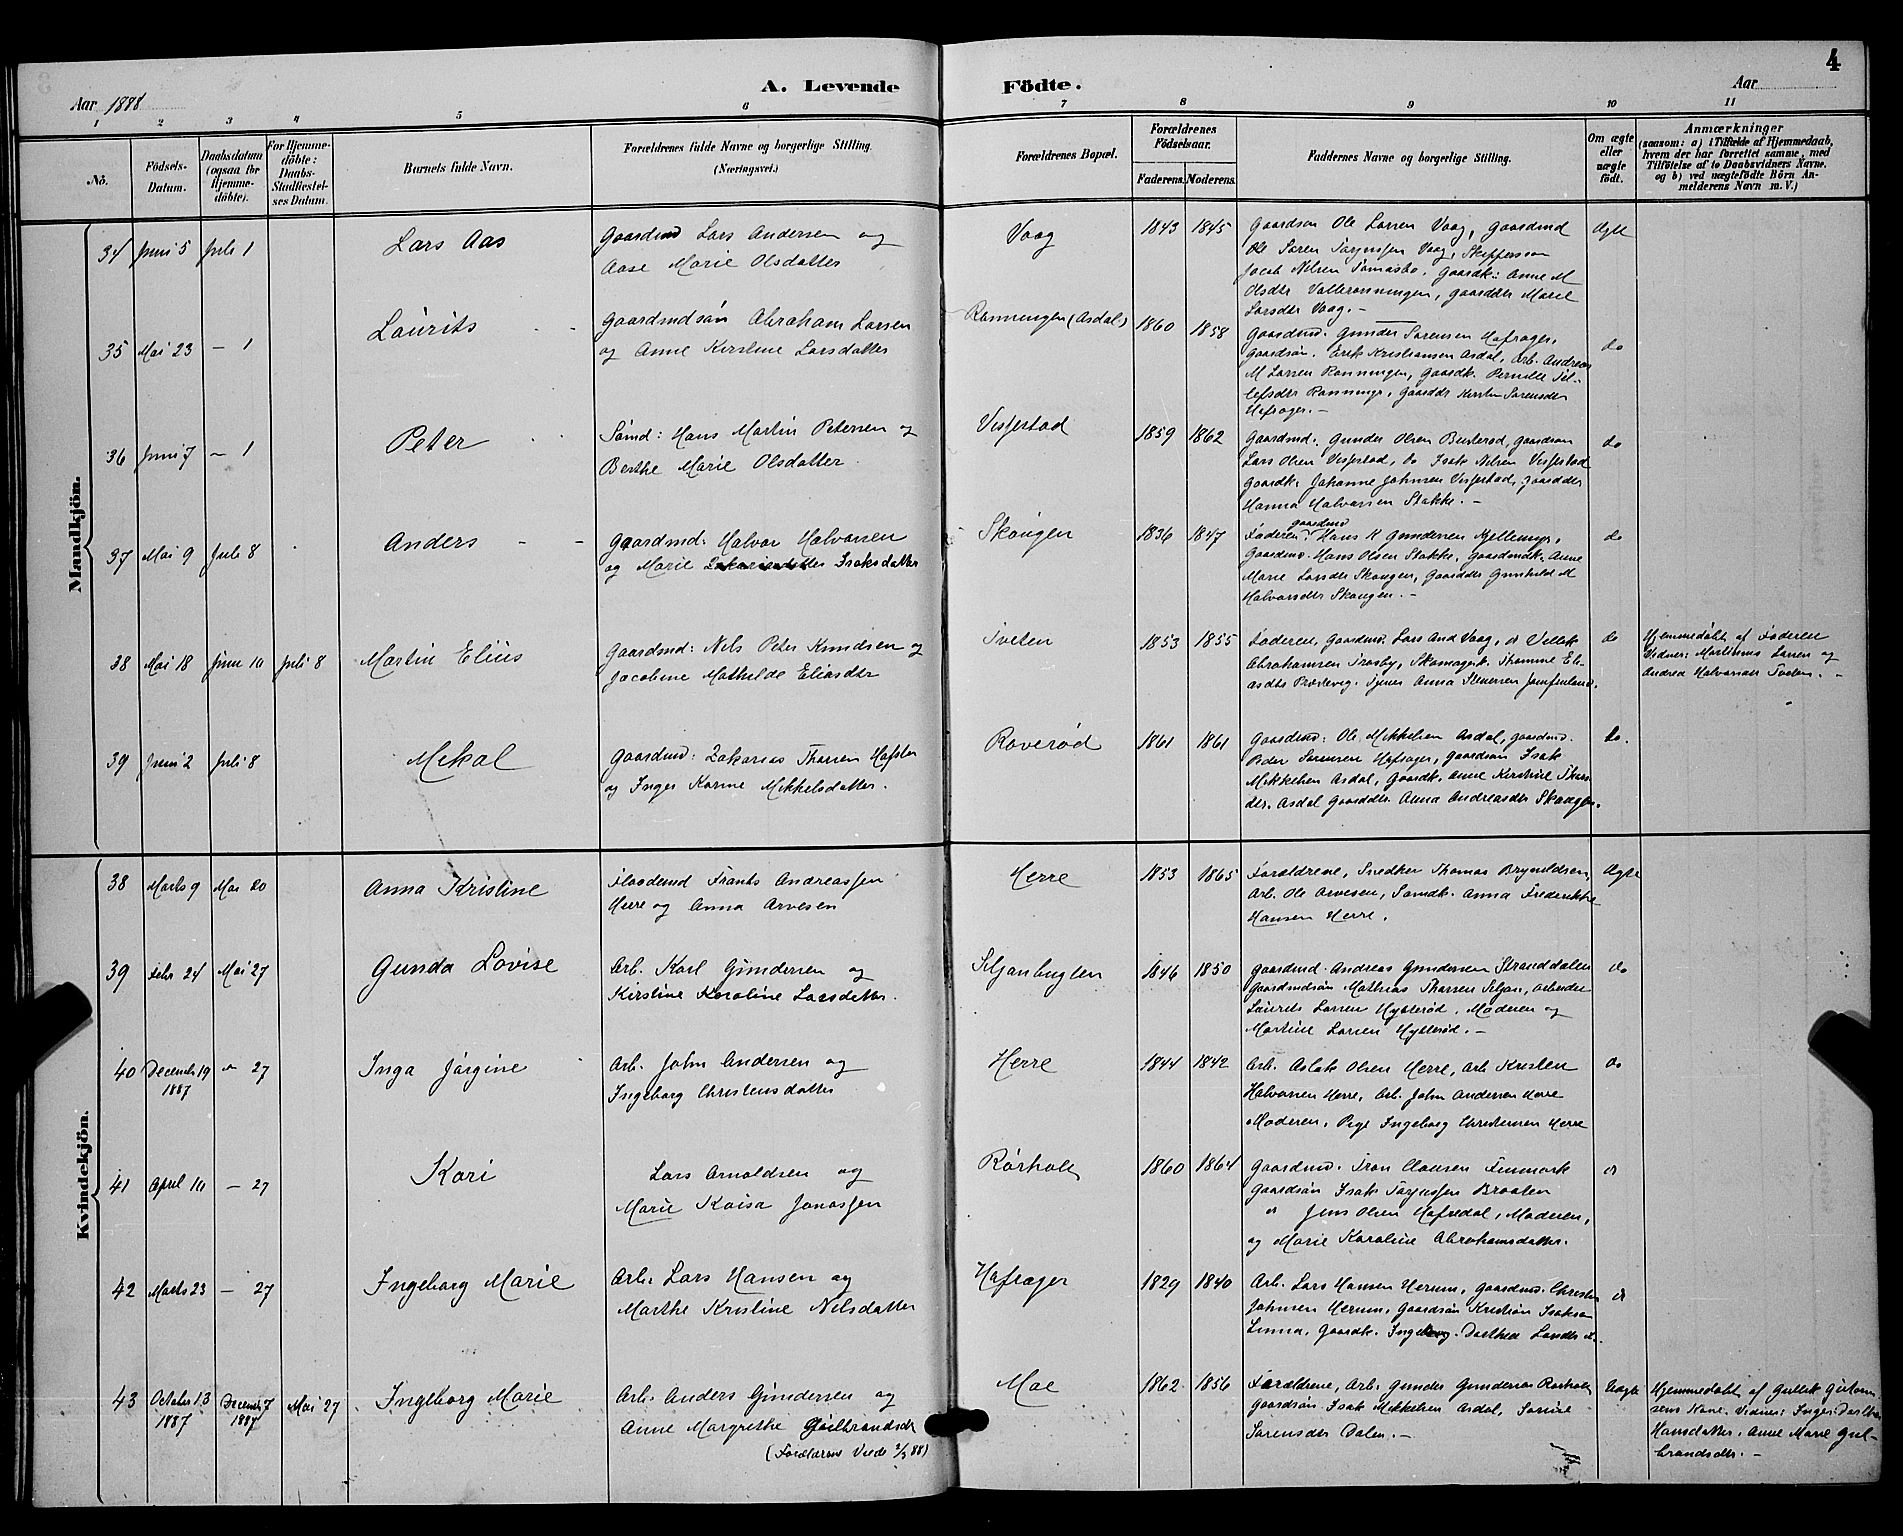 4
Aar 1888
A. Levende
Födte.
Aar
1 2 3 4 5 6 7 8 9 10 11
No.
Födsels-Datum.
Daabsdatum (ogsaa for Hjemme-döbte).
For Hjemme-döbte: Daabs-Stadfæstel-ses Datum.
Barnets fulde Navn.
Forældrenes fulde Navne og borgerlige Stilling. (Næringsvei.)
Forældrenes Bopæl.
Forældrenes Födselsaar.
Faderens. Moderens.
Faddernes Navne og borgerlige Stilling.
Om ægte eller uægte födt.
Anmærkninger
(saasom: a) i Tilfælde af Hjemmedaab, hvem der har forrettet samme, med Tilföielse af to Daabsvidners Navne. og b) ved uægtefödte Börn An-melderens Navn m. V.)
Mandkjön.
34 Juni 5 Juli 1 Lars Aas
Gaardmd Lars Andersen og
Aase Marie Olsdatter
Vaag 1843 1845
Gaardsøn Ole Larsen Vaag, Gaardmd
Ole Søren Torjussen Vaag, Skippersøn
Jacob Nilsen Tomasbo, Gaardk: Anne M
Olsdtr Vallerønningen, gaarddtr Marie
Larsdtr Vaag. -
Ægte
35 Mai 23 - 1 Laurits
Gaardmdsøn Abraham Larsen
og Anne Kirstine Larsdatter
Rønningen (Asdal) 1860 1858
Gaardmd. Gunder Sørensen Hafsager,
Gaardsøn. Erik Kristiansen Asdal, Arb. Andreas
M Larsen Rønningen, Gaardk. Pernille Til-
lefsdtr Rønninge, Gaarddtr Kirsten Sørensdtr
Hafsager. -
do
36 Juni 7 - 1 Peter
Sømd: Hans Martin Petersen og
Berthe Marie Olsdatter
Vissestad 1859 1862
Gaardmd: Gunder Olsen Busterød, gaardsøn
Lars Olsen Vissestad, do Isak Nilsen Vissestad
Gaardk. Johanne Johnsen Vissestad, gaarddtr
Hanna Halvorsen Stokke. -
do
37 Mai 9 Juli 8 Anders - -
Gaardmd: Halvor Halvorsen
og Marie Isaksdatter
Skougen 1836 1847
Faderen, gaardmd Hans K Gundersen Kjellemyr,
Gaardmd. Hans Olsen Stokke, Gaardmdk. Anne
Marie Larsdtr Skougen, Gaarddtr Gunhild M
Halvorsdtr Skougen. -
do
38 Mai 18 Juni 10 Juli 8 Martin Elius
Gaardmd: Nils Peter Knudsen og
Jacobine Mathilde Eliasdtr
Tveten 1853 1855
Faderen, Gaardmd. Lars And Vaag, do
Abrahamsen Trosby, Skomagerk. Thomine Eli-
asdtr Prestevig. Tjener Anna Steensen Jomfruland.
do
Hjemmedøbt af Faderen
Vidner: Marthinus Larsen og
Andrea Halvorsdtr Tveten. -
39 Juni 2 Juli 8 Mekal
Gaardmd: Zakarias Thorsen Hafsten
og Inger Karine Mikkelsdatter.
Roverød 1861 1861
Gaardmd: Ole Mikkelsen Asdal, gaardmd.
Peder Sørensen Hafsager, gaardsøn Isak
Mikkelsen Asdal, Gaardk. Anne Kirstine Thors
dtr. Asdal Gaarddtr. Anna Andreasdtr Skougen.
do.
Kvindekjön.
38 Marts 9 Mai 20 Anna Kristine
Frants Andreassen
Herre og Anna Arvesen
Herre 1853 1865
Forældrene, Snedker Thomas Brynildsen,
Arb. Ole Arvesen, Sømdk. Anna Frederikke
Hansen Herre.
Ægte
39 Febr 24 Mai 27 Gunda Lovise
Arb. Karl Gundersen og
Kirstine Karoline Larsdatter.
Siljanbugten 1846 1850
Gaardmd. Andreas Gundersen Stranddalen
Gaardmdsøn Mathias Thorsen Siljan, arbeider
Laurits Larsen Hytterød, Moderen og
Martine Larsen Hytterød. -
do
40 December 19 1887 - 27 Inga Jørgine
Arb. John Andersen og
Ingeborg Christensdatter
Herre 1844 1842
Arb. Aslak Olsen Herre, Arb Kristen
Halvorsen Herre, Arb. John Andersen Herre
Moderen, Pige Ingeborg Christensen Herre
do
41 April 10 - 27 Kari
Lars Arnoldsen og
Marie Kaisa Jonassen
Rørholt 1860 1864
Gaardmd. Tron Clausen Finmark
Gaardsøn Isak Torjussen Braaten
do Jens Olsen Hafredal, Moderen,
og Marie Karoline Abrahamsdatter.
do
42 Marts 23 - 27 Ingeborg Marie
Arb: Lars Hansen og
Marthe Kristine Nilsdatter
Hafsager 1829 1840
Arb. Lars Hansen Herum, Gaardmd. Christen
Johnsen Herum, Gaardsøn Kristian Isaksen
Linna, Gaardk. Ingeborg Dorthea
do
43 October 13 1887 December 7 1887 Mai 27 Ingeborg Marie
Arb. Anders Gundersen og
Anne Margrethe Gulbrandsdtr
(Forældrene Viede 2/3 88)
Moe 1862 1856
Forældrene, Arb. Gunder Gundersen Rørholt
Gaardsøn Isak Mikkelsen Asdal, Sørine
Sørensdtr Dalen. -
Uægte
Hjemmedøbt af Gullik
Kone. Vidner: Inger Dorthea
Hansdatter, Anne Marie Gul-
brandsdtr. -